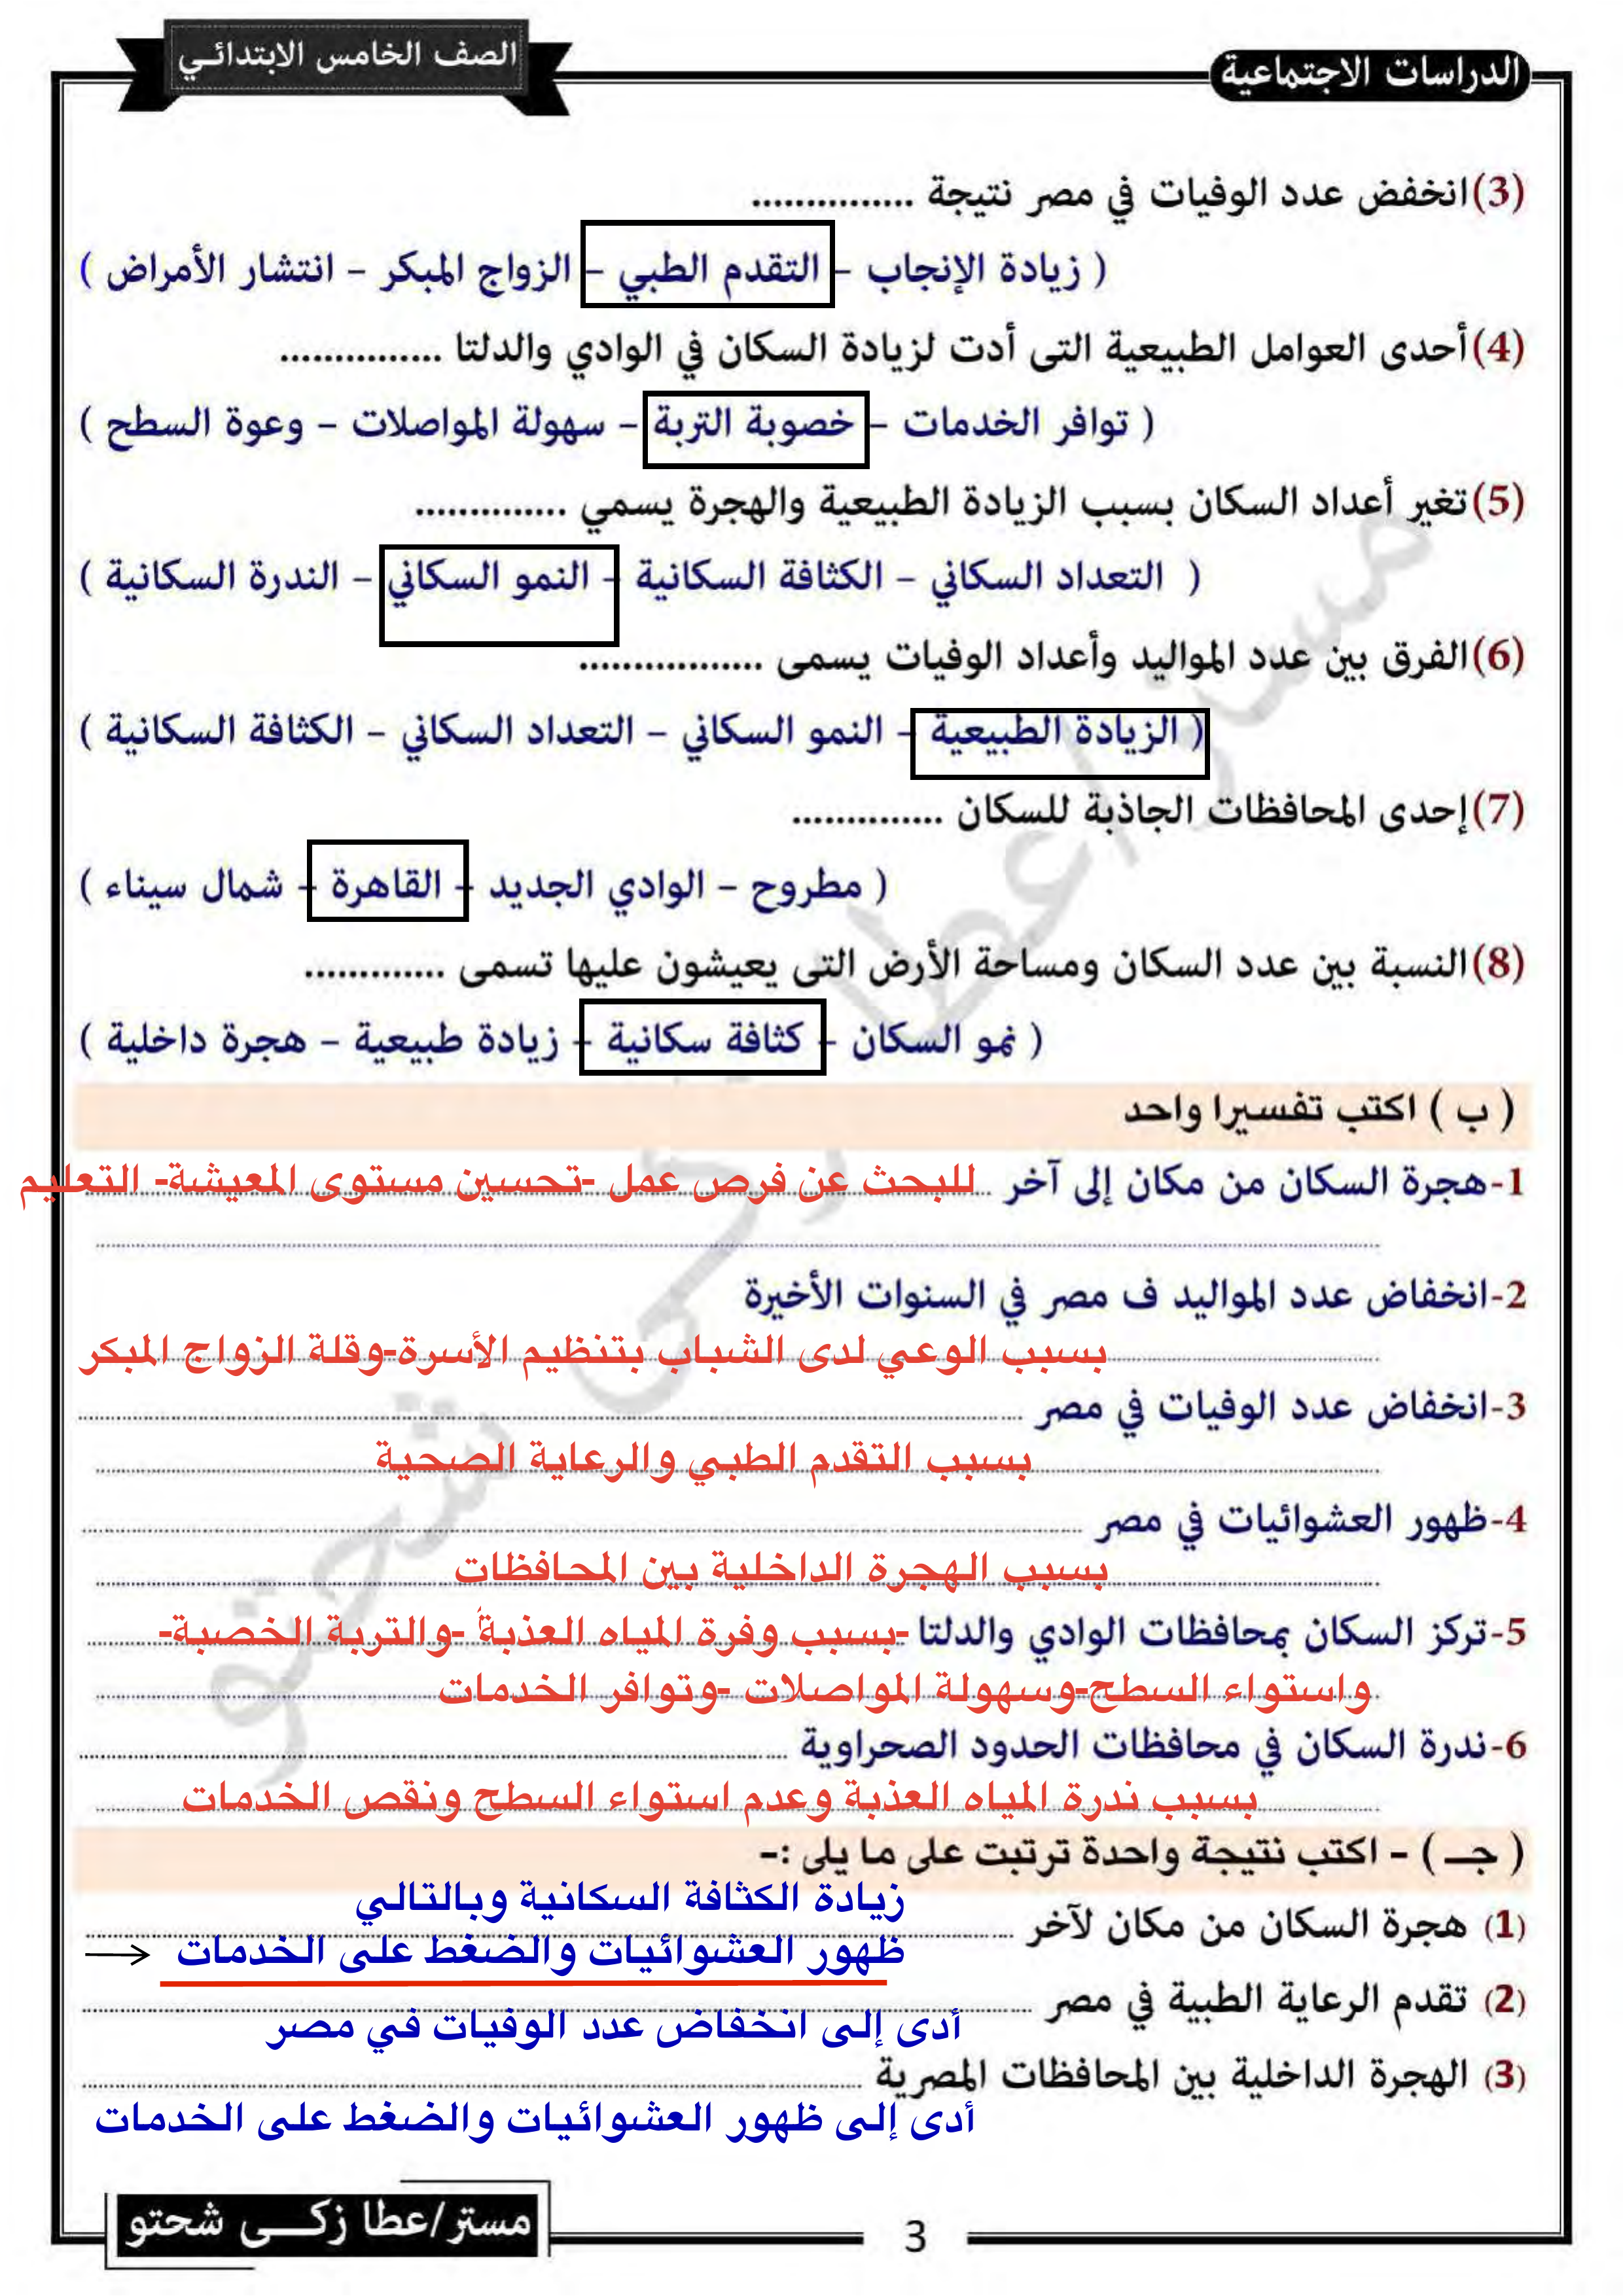 الدراسات الاجتماعية
الصف الخامس الابتدائي
(3) انخفض عدد الوفيات في مصر نتيجة ...............
( زيادة الإنجاب – التقدم الطبي – الزواج المبكر – انتشار الأمراض )
(4) أحدى العوامل الطبيعية التى أدت لزيادة السكان في الوادي والدلتا ...............
( توافر الخدمات – خصوبة التربة – سهولة المواصلات – وعوة السطح )
(5) تغير أعداد السكان بسبب الزيادة الطبيعية والهجرة يسمي ..............
( التعداد السكاني – الكثافة السكانية – النمو السكاني – الندرة السكانية )
(6) الفرق بين عدد المواليد وأعداد الوفيات يسمى .................
( الزيادة الطبيعية – النمو السكاني – التعداد السكاني – الكثافة السكانية )
(7) إحدى المحافظات الجاذبة للسكان ..............
( مطروح – الوادي الجديد – القاهرة – شمال سيناء )
(8) النسبة بين عدد السكان ومساحة الأرض التى يعيشون عليها تسمى .............
( نمو السكان – كثافة سكانية – زيادة طبيعية – هجرة داخلية )
( ب ) اكتب تفسيرا واحد
1-هجرة السكان من مكان إلى آخر للبحث عن فرص عمل -تحسين مستوى المعيشة- التعليم
2-انخفاض عدد المواليد ف مصر في السنوات الأخيرة
بسبب الوعي لدى الشباب بتنظيم الأسرة-وقلة الزواج المبكر
3-انخفاض عدد الوفيات في مصر
بسبب التقدم الطبي والرعاية الصحية
4-ظهور العشوائيات في مصر
بسبب الهجرة الداخلية بين المحافظات
5-تركز السكان بمحافظات الوادي والدلتا -بسبب وفرة المياه العذبة -والتربة الخصبة-
واستواء السطح-وسهولة المواصلات -وتوافر الخدمات
6-ندرة السكان في محافظات الحدود الصحراوية
بسبب ندرة المياه العذبة وعدم استواء السطح ونقص الخدمات
( جـ ) - اكتب نتيجة واحدة ترتبت على ما يلى :-
زيادة الكثافة السكانية وبالتالي
(1) هجرة السكان من مكان لآخر
ظهور العشوائيات والضغط على الخدمات
(2) تقدم الرعاية الطبية في مصر
أدى إلى انخفاض عدد الوفيات في مصر
(3) الهجرة الداخلية بين المحافظات المصرية
أدى إلى ظهور العشوائيات والضغط على الخدمات
مستر/عطا زكـــى شحتو
3
مستر/عطا زكى شحتو